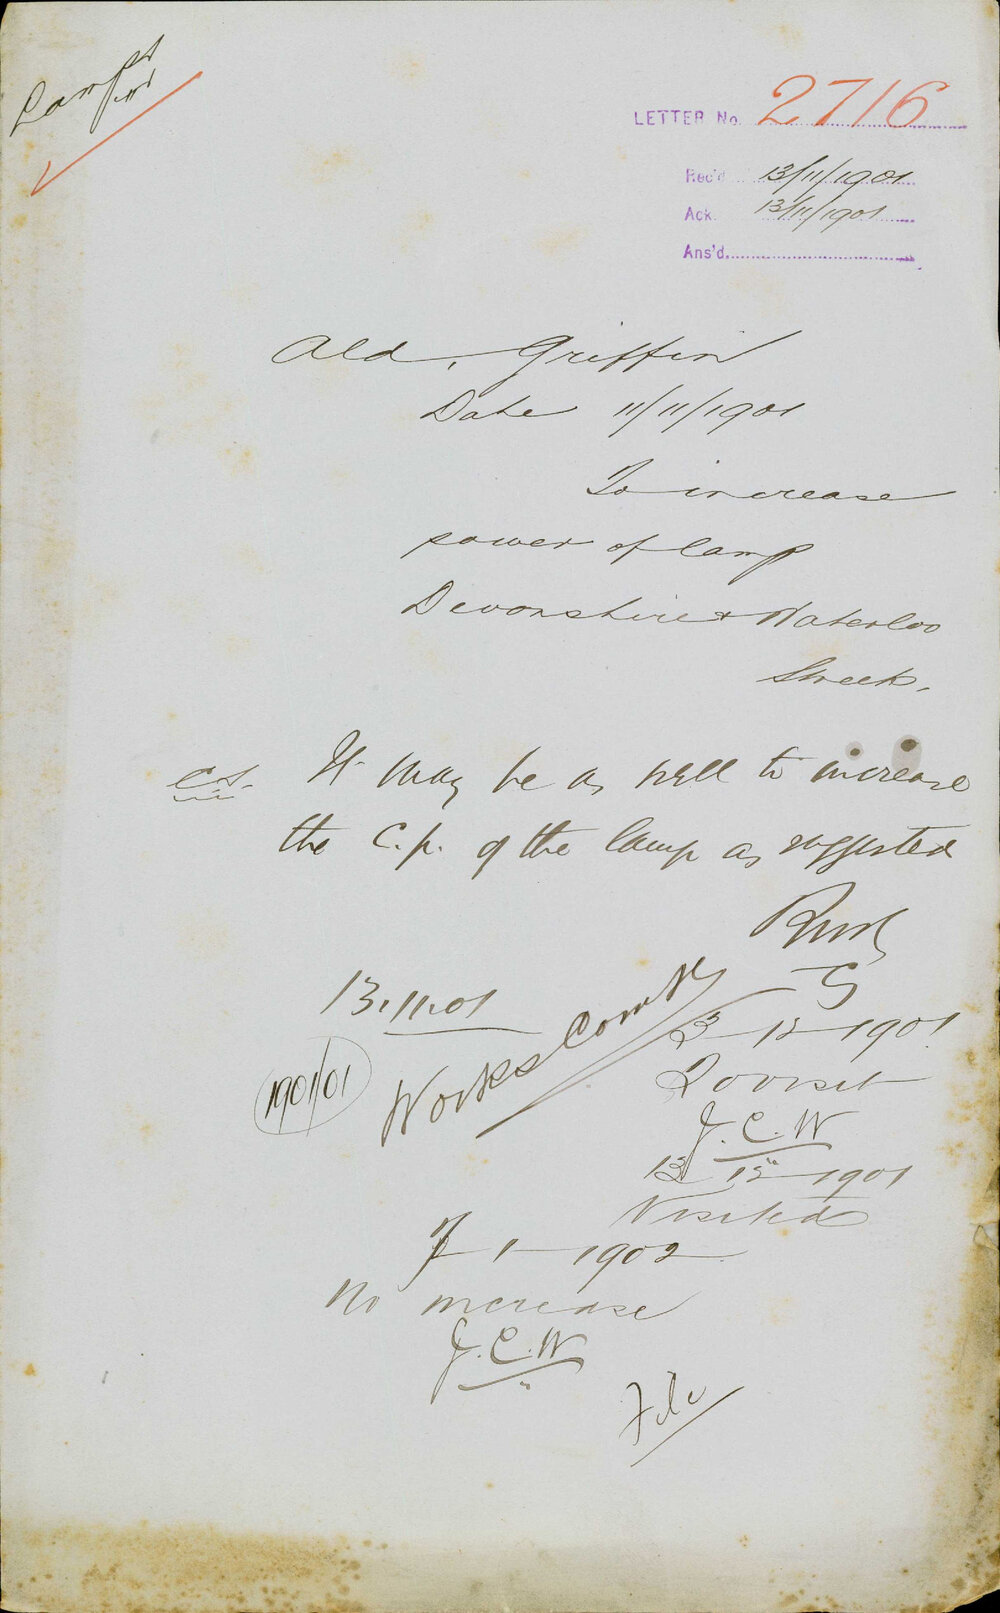 Lamps
LETTER No. 2716
Rec'd 13/11/1901
Ack. 13/11/1901
Ans'd.
Ald. Griffin
Date 11/11/1901
To increase
power of lamp
Devonshire & Waterloo
Streets.
C.S. It may be as well to increase
the C.p. of the lamp as suggested
13.11.01
1901/01
Works Comtee
3-12-1901
To visit
J.C.W
12-1901
Visited
1-1902
No increase
J.C.W
File